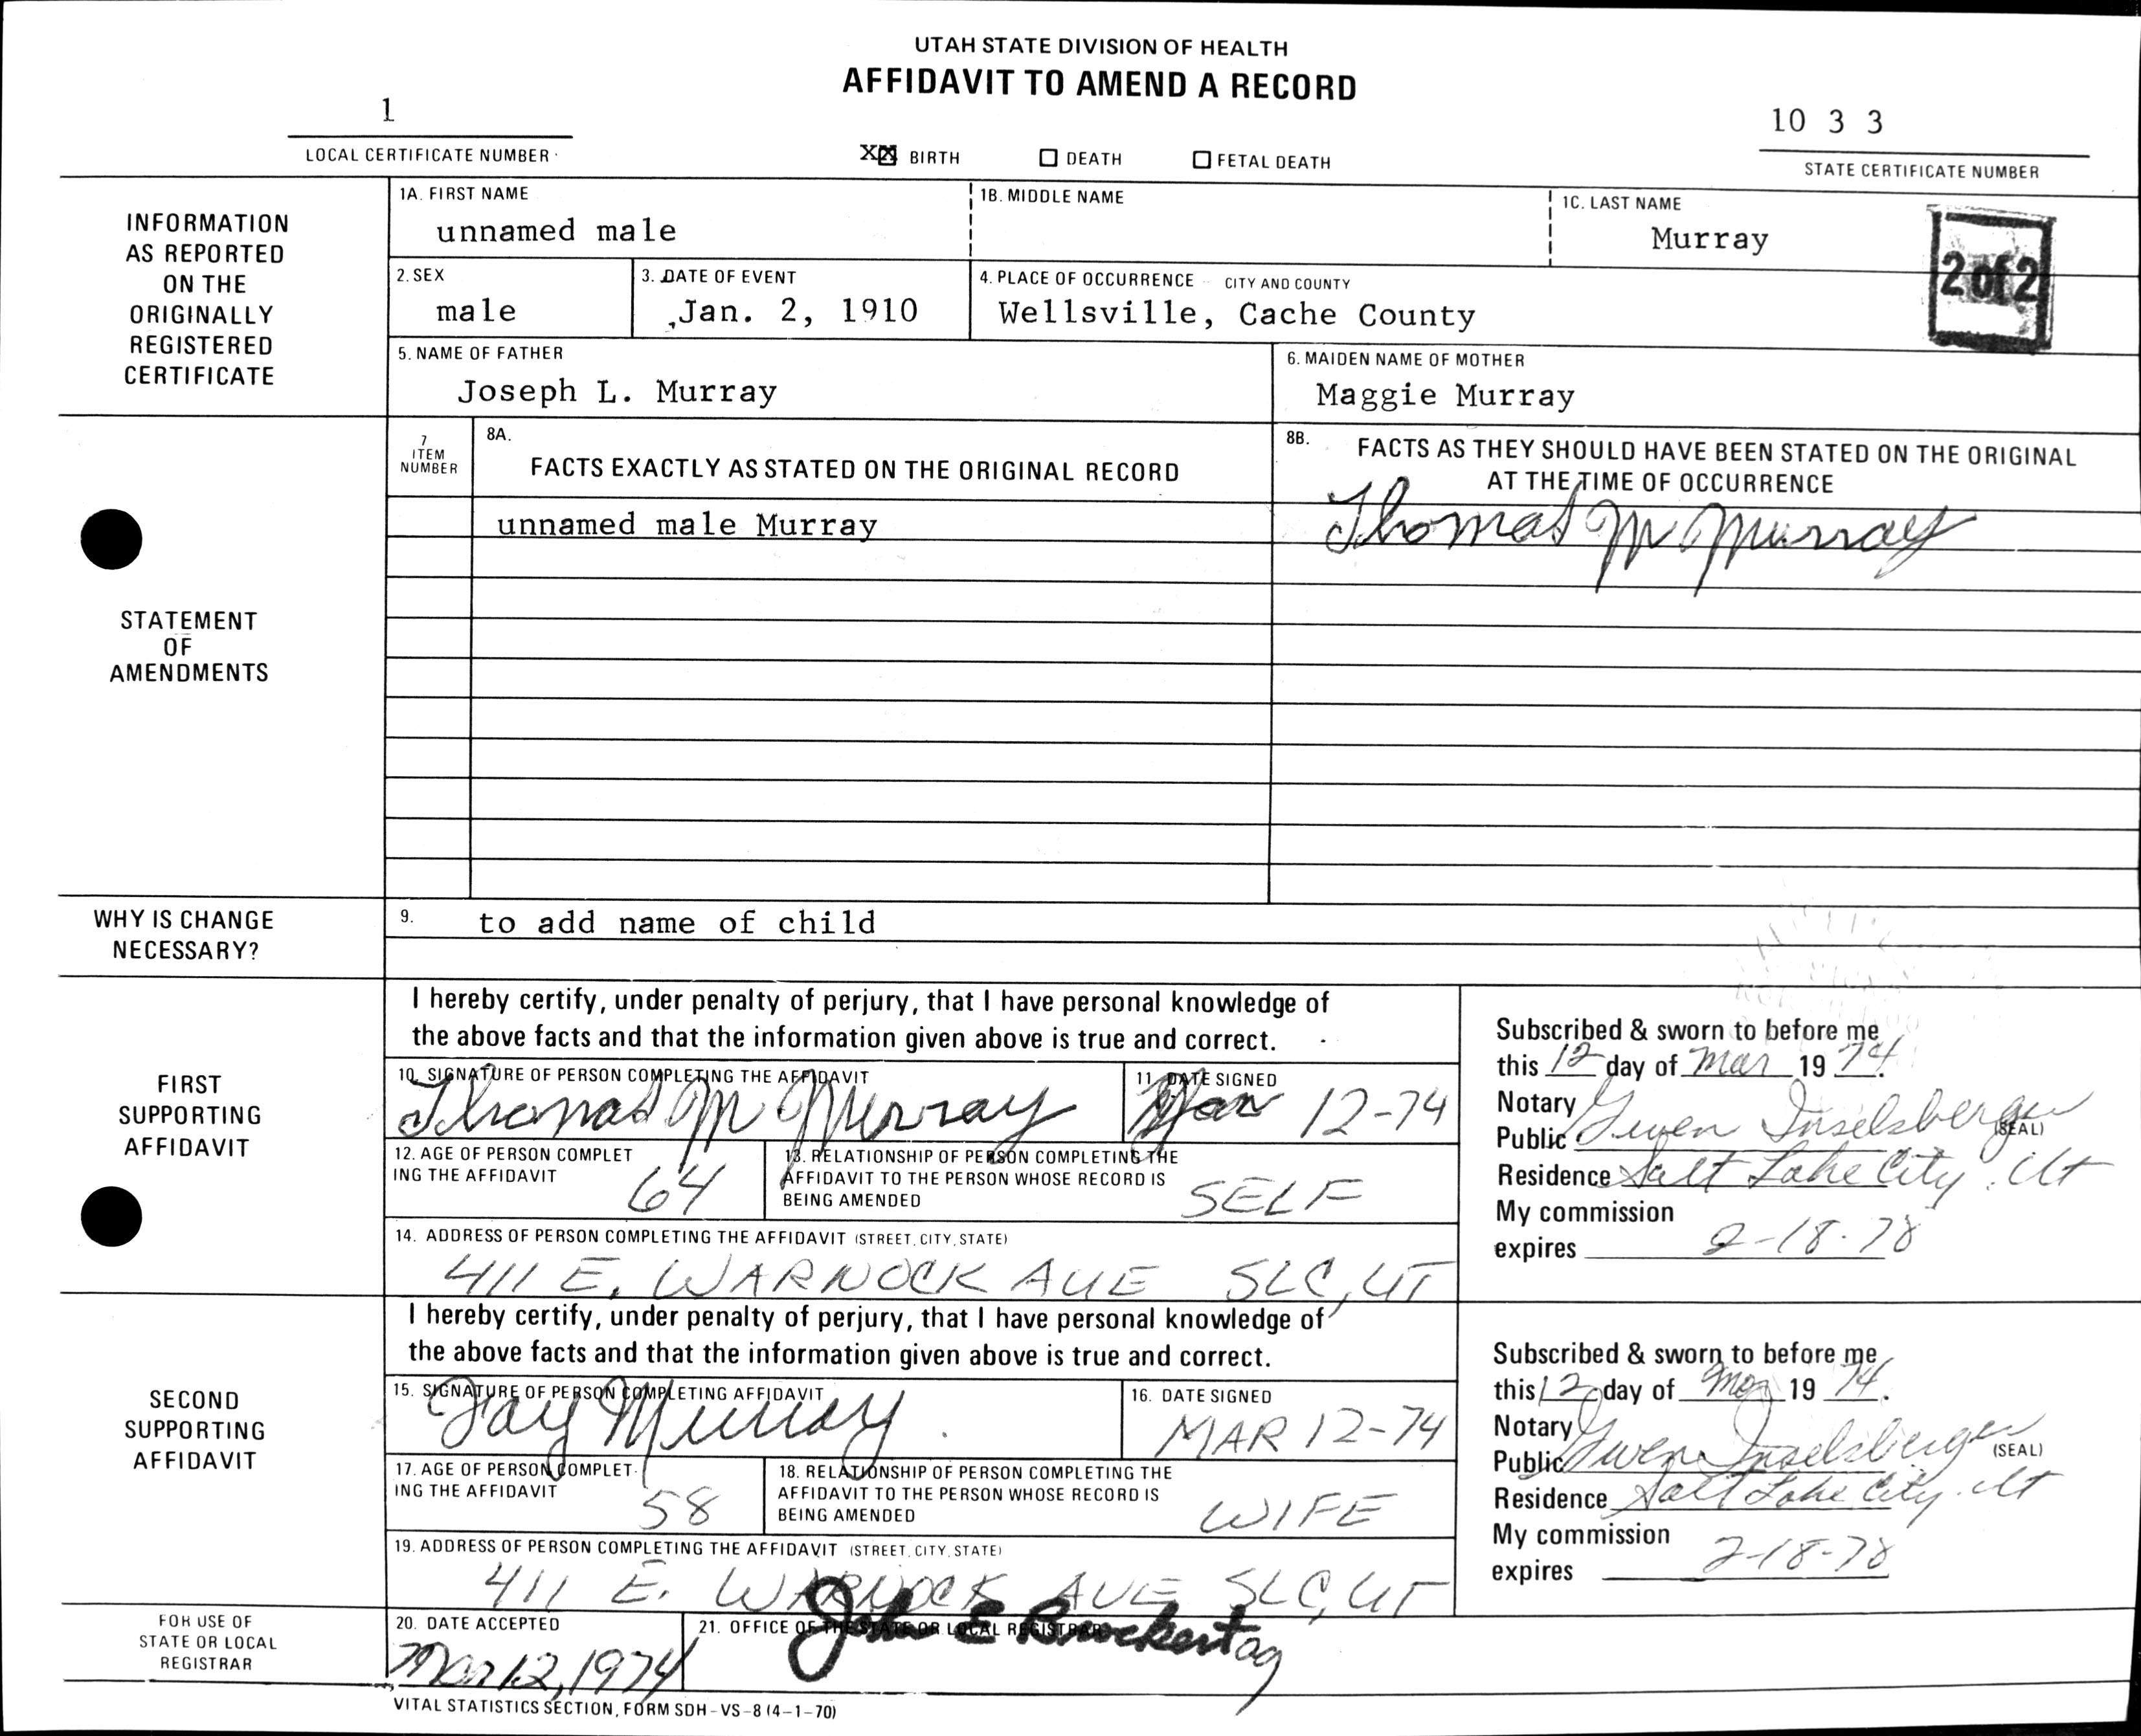 UTAH STATE DIVISION OF HEALTH
AFFIDAVIT TO AMEND A RECORD
1
LOCAL CERTIFICATE NUMBER
X☒ BIRTH ☐ DEATH ☐ FETAL DEATH
10 3 3
STATE CERTIFICATE NUMBER
INFORMATION
AS REPORTED
ON THE
ORIGINALLY
REGISTERED
CERTIFICATE
1A. FIRST NAME
unnamed male
1B. MIDDLE NAME
1C. LAST NAME
Murray
2 of 2
2. SEX
male
3. DATE OF EVENT
Jan. 2, 1910
4. PLACE OF OCCURRENCE CITY AND COUNTY
Wellsville, Cache County
5. NAME OF FATHER
Joseph L. Murray
6. MAIDEN NAME OF MOTHER
Maggie Murray
STATEMENT
OF
AMENDMENTS
7
ITEM
NUMBER
8A.
FACTS EXACTLY AS STATED ON THE ORIGINAL RECORD
8B. FACTS AS THEY SHOULD HAVE BEEN STATED ON THE ORIGINAL
AT THE TIME OF OCCURRENCE
unnamed male Murray
Thomas M Murray
WHY IS CHANGE
NECESSARY?
9. to add name of child
FIRST
SUPPORTING
AFFIDAVIT
I hereby certify, under penalty of perjury, that I have personal knowledge of
the above facts and that the information given above is true and correct.
10. SIGNATURE OF PERSON COMPLETING THE AFFIDAVIT
Thomas M Murray
11. DATE SIGNED
12-74
12. AGE OF PERSON COMPLET
ING THE AFFIDAVIT
64
13. RELATIONSHIP OF PERSON COMPLETING THE
AFFIDAVIT TO THE PERSON WHOSE RECORD IS
BEING AMENDED
SELF
14. ADDRESS OF PERSON COMPLETING THE AFFIDAVIT (STREET, CITY, STATE)
411 E. WARNOCK AVE SLC, UT
Subscribed & sworn to before me
this 12 day of Mar 19 74.
Notary
Public Gwen Inselsberger (SEAL)
Residence Salt Lake City, Ut
My commission
expires 2-18-78
SECOND
SUPPORTING
AFFIDAVIT
I hereby certify, under penalty of perjury, that I have personal knowledge of
the above facts and that the information given above is true and correct.
15. SIGNATURE OF PERSON COMPLETING AFFIDAVIT
Fay Murray
16. DATE SIGNED
MAR 12-74
17. AGE OF PERSON COMPLET-
ING THE AFFIDAVIT
58
18. RELATIONSHIP OF PERSON COMPLETING THE
AFFIDAVIT TO THE PERSON WHOSE RECORD IS
BEING AMENDED
WIFE
19. ADDRESS OF PERSON COMPLETING THE AFFIDAVIT (STREET, CITY, STATE)
411 E. WARNOCK AVE SLC, UT
Subscribed & sworn to before me
this 12 day of Mar 19 74.
Notary
Public Gwen Inselsberger (SEAL)
Residence Salt Lake City, Ut
My commission
expires 2-18-78
FOR USE OF
STATE OR LOCAL
REGISTRAR
20. DATE ACCEPTED
Mar 12, 1974
21. OFFICE OF THE STATE OR LOCAL REGISTRAR
John E Brockert ag
VITAL STATISTICS SECTION, FORM SDH-VS-8 (4-1-70)